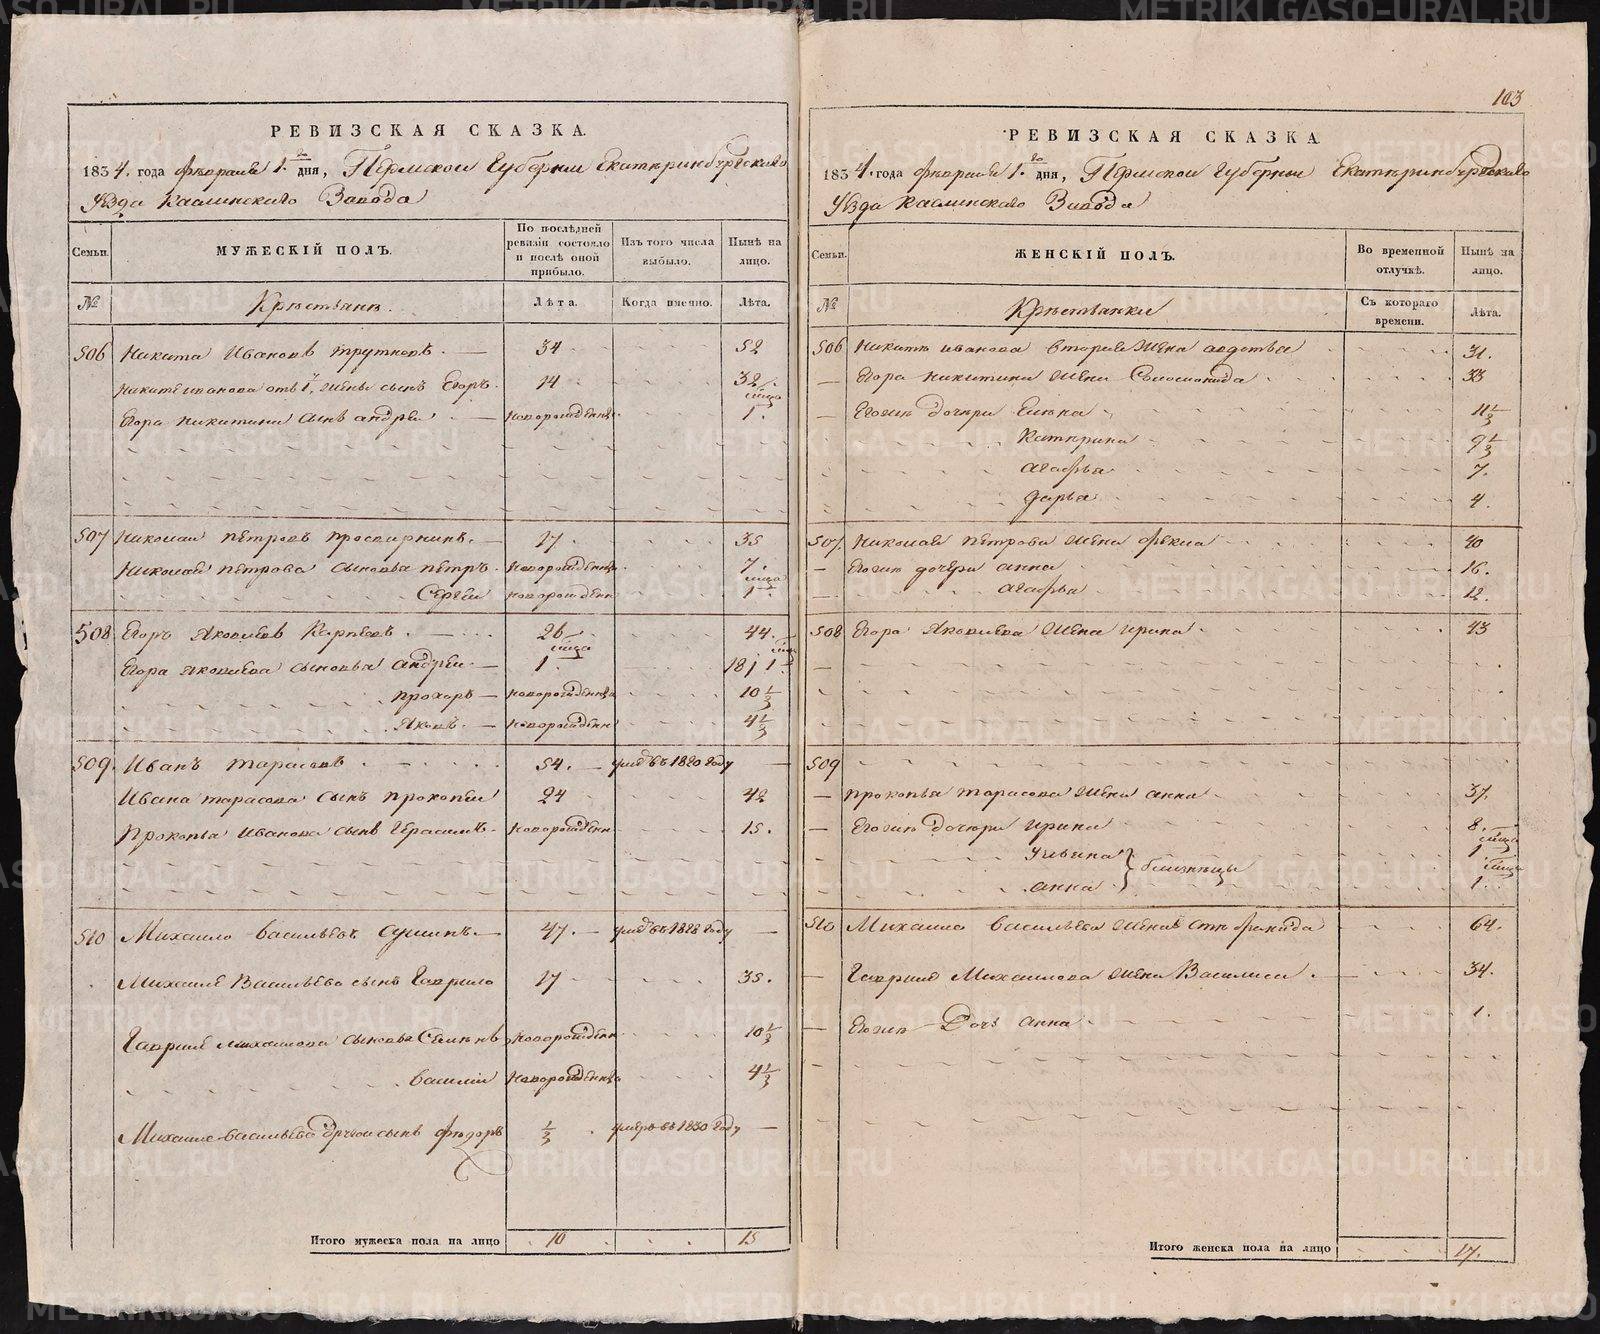 РЕВИЗСКАЯ СКАЗКА.
1834. года февраля 1.го дня, Пермской Губернии Екатеринбургскаго
Уѣзда Каслинскаго Завода
Семьи.
МУЖЕСКІЙ ПОЛЪ.
По послѣдней ревизіи состояло и послѣ оной прибыло.
Изъ того числа выбыло.
Нынѣ на лицо.
№
Крестьяне.
Лѣта.
Когда именно.
Лѣта.
506 Никита Ивановъ 34 52
Никиты Иванова отъ 1й жены сынъ Егоръ. 14 32
Егора Никитина сынъ Андрей новорожденъ 1 мѣсяца
507 Николай Петровъ 17. 35
Николая Петрова сыновья Петръ новорожденъ 7.
Сергѣй новорожденъ 1 мѣсяца
508 Егоръ Яковлевъ Карпѣевъ 26 44.
Егора Яковлева сыновья Андрей 1 мѣсяца 18 1
Прохоръ новорожденъ 10 1/3
Яковъ новорожденъ 4 1/3
509. Иванъ Тарасовъ 54. умер въ 1820 году
Ивана Тарасова сынъ Прокопей 24 42
Прокопья Иванова сынъ Герасимъ новорожден 15.
510 Михайло Васильевъ Сушинъ 47. умер въ 1828 году
Михайла Васильева сынъ Гаврило 17 35.
Гаврила Михайлова сыновья Семенъ новорожден 10 1/3
Василій новорожденъ 4 1/3
Михайла Васильева другой сынъ Федоръ 1/3 умеръ въ 1830 году
Итого мужеска пола на лицо 10 15
103
РЕВИЗСКАЯ СКАЗКА
1834. года февраля 1.го дня, Пермской Губернии Екатеринбургскаго
Уѣзда Каслинскаго Завода
Семьи.
ЖЕНСКІЙ ПОЛЪ.
Во временной отлучкѣ.
Нынѣ на лицо.
№
Крестьянки
Съ котораго времени.
Лѣта.
506 Никиты Иванова вторая жена Авдотья 31.
Егора Никитина жена Соломонида 33
Егоины дочери Елена 11 1/3
Катерина 9 1/3
Агафья 7.
Дарья 4.
507. Николая Петрова жена Фекла 40
Егоины дочери Анна 16.
Агафья 12.
508 Егора Яковлева жена Ирина 43
509
Прокопья Тарасова жена Анна 37.
Егоины дочери Ирина 8.
Ульяна 1 мѣсяца
близнецы
Анна 1 мѣсяца
510 Михайла Васильева жена Стефанида 64.
Гаврила Михайлова жена Василиса 34.
Егоина дочь Анна 1.
Итого женска пола на лицо 17.
METRIKI.GASO-URAL.RU